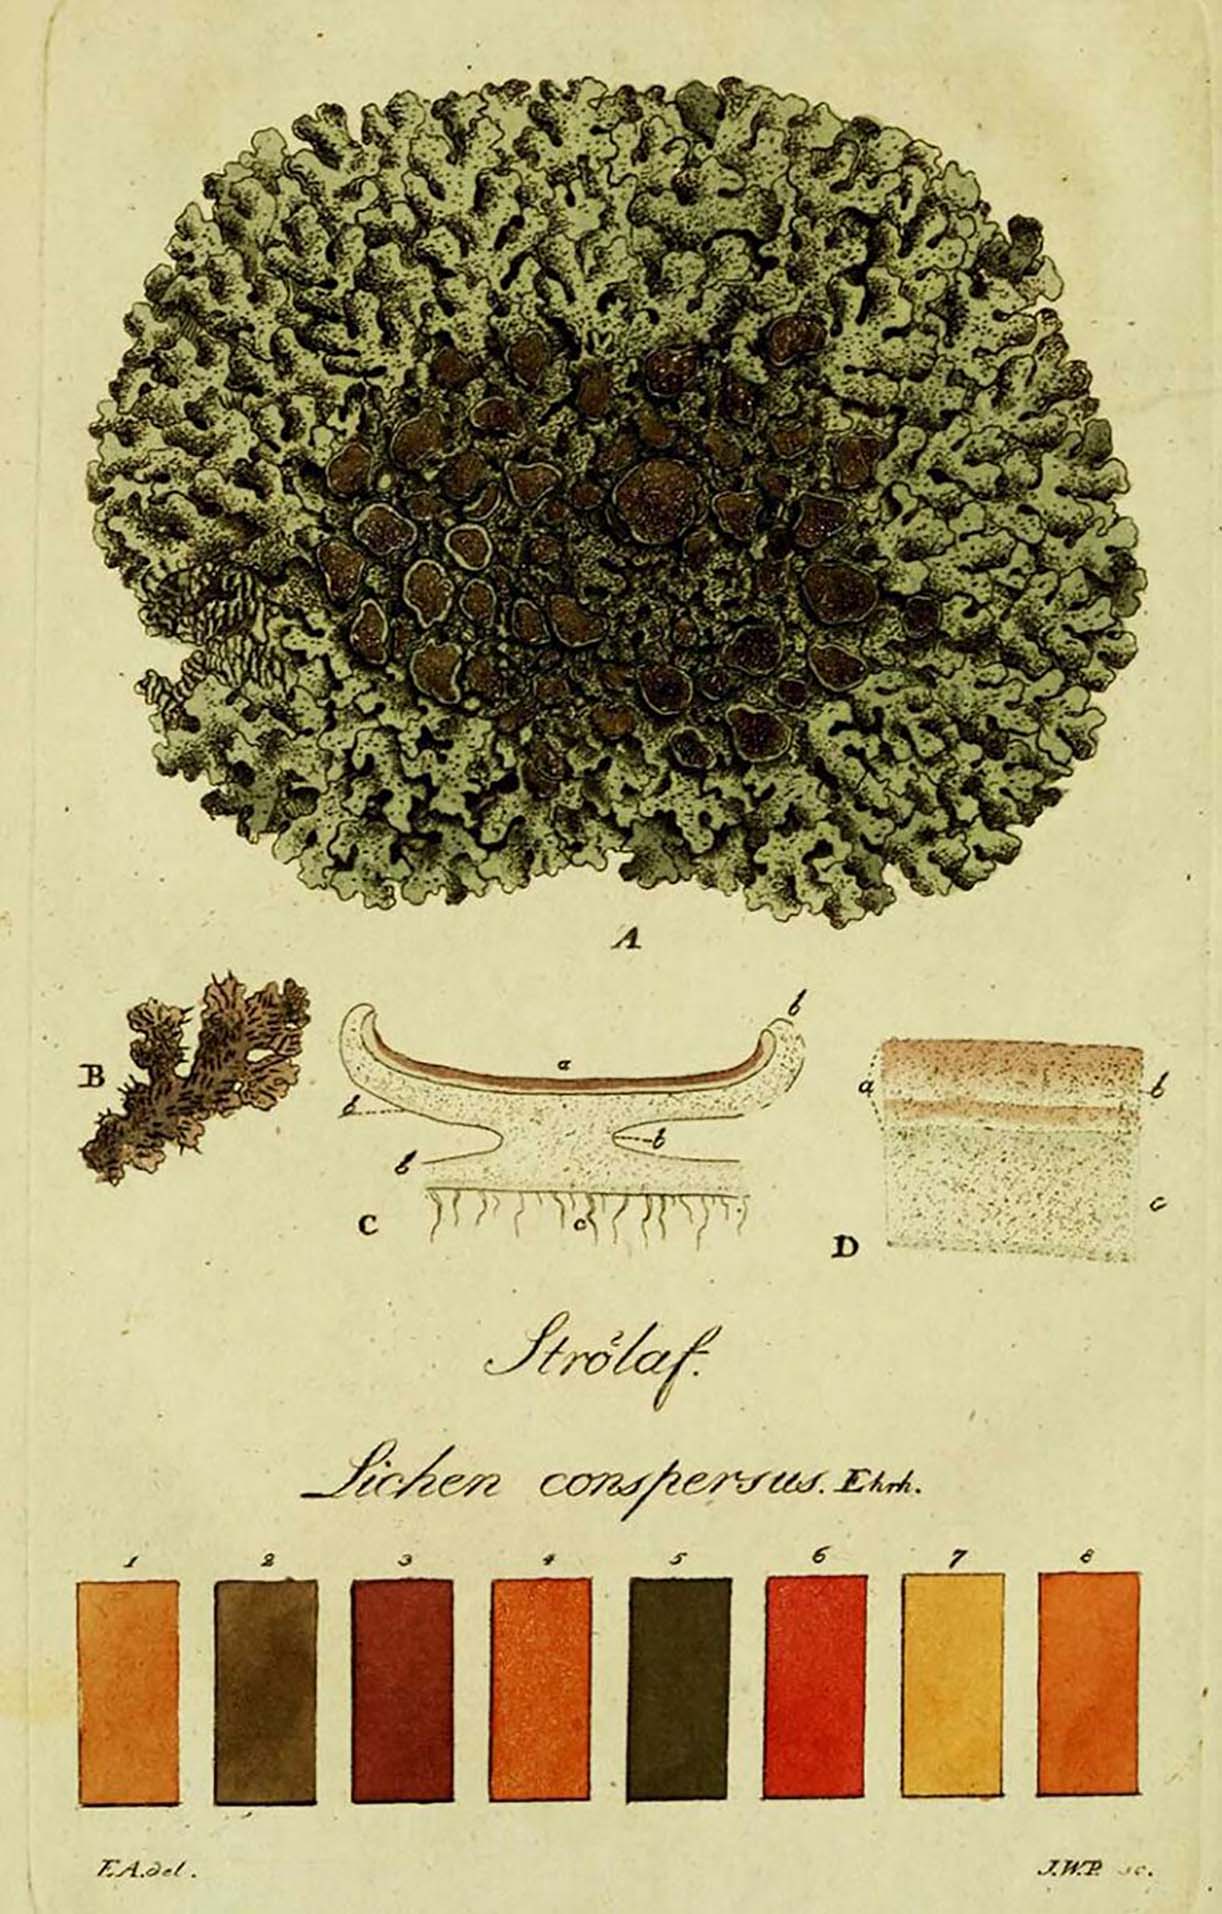 A
B
b
a
b
b
b
c
C
a
b
c
D
Strölaf.
Lichen conspersus. Ehrh.
1 2 3 4 5 6 7 8
E.A. del. J.W.P. sc.